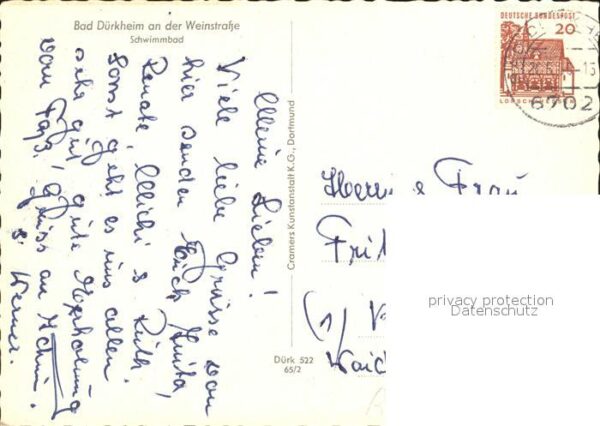 Bad Dürkheim an der Weinstraße
Schwimmbad
Meine Lieben!
Viele liebe Grüsse von
hier senden Euch Anita,
Renate, Michi & Ruth.
Sonst geht es uns allen
sehr gut, gute
vom Fass! Gruss an
& Werner.
Cramers Kunstanstalt K.G., Dortmund
Dürk 522
65/2
DEUTSCHE BUNDESPOST
20
LORSCH
6702
Herrn & Frau
Frit
(1)
privacy protection
Datenschutz